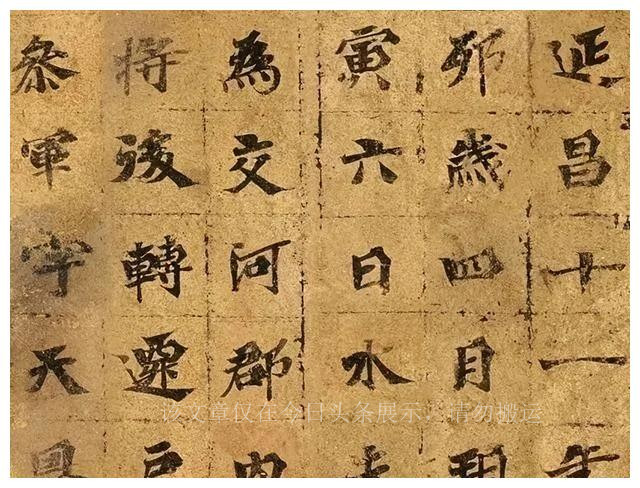 延昌十一年
卯歲四月朔
寅六日水
為交河郡內
將後轉遷戶
參軍字天
该文章仅在今日头条展示，请勿搬运